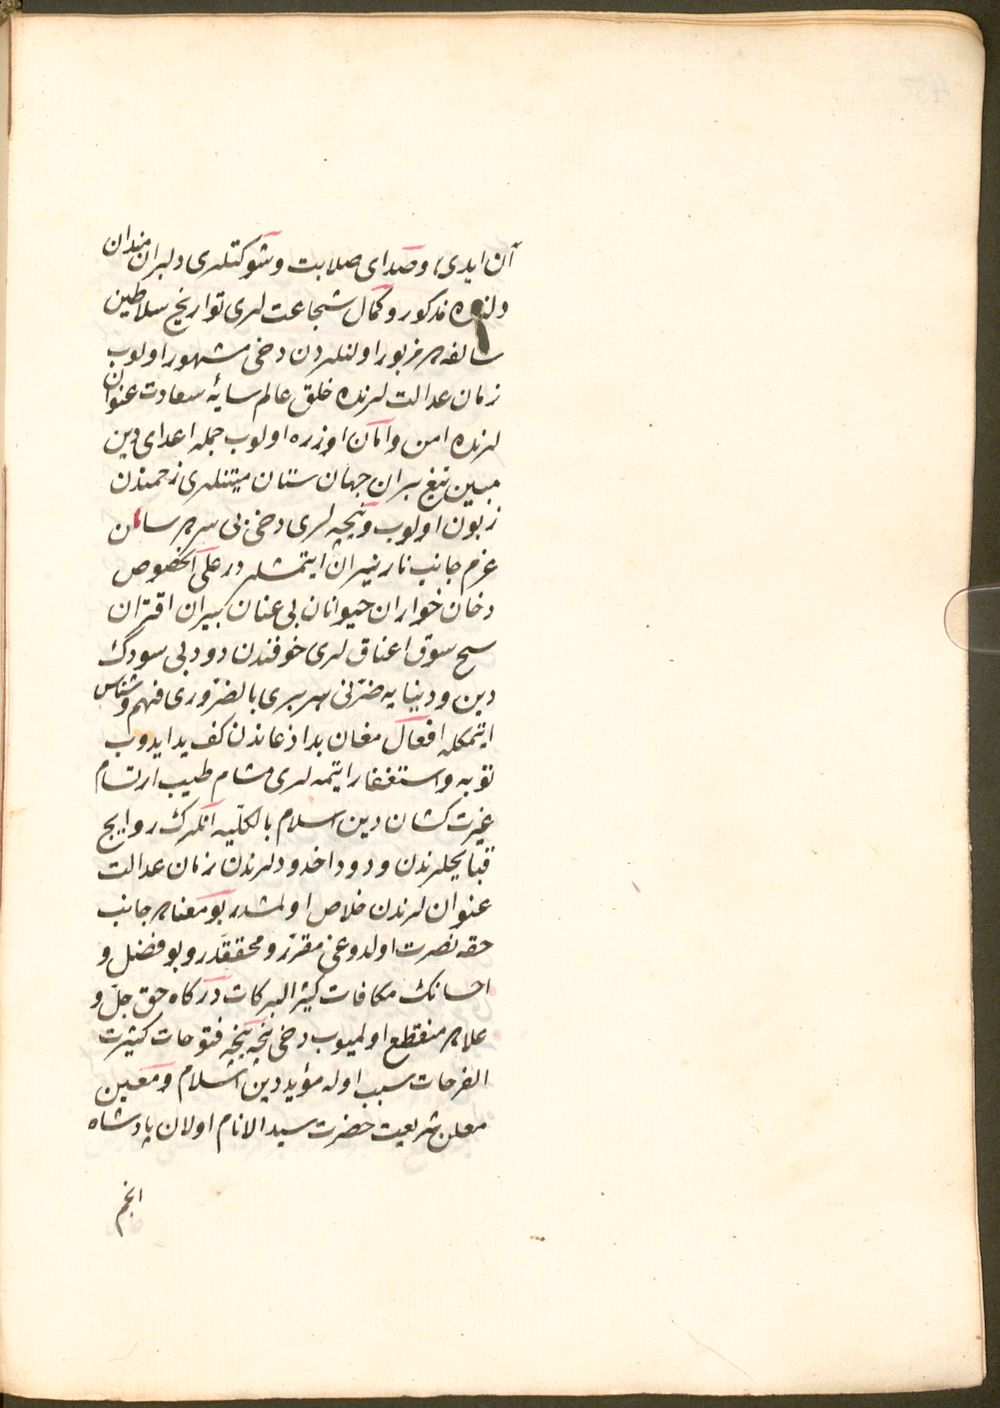 آن ایدی، و صدای صلابت و شوکتلری دلیران میدان
دلنده مذکور و کمال شجاعت لری تواریخ سلاطین
سالفه‌ده مزبور اولنلردن دخی مشهور اولوب
زمان عدالت لرنده خلق عالم سایهٔ سعادت عنوان
لرنده امن و آمان اوزره اولوب جمله اعدای دین
مبین تیغ بران جهان ستان متینلری زخمندن
زبون اولوب و نیجه لری دخی بی سر و سامان
عزم جانب نار نیران ایتمشلردر علی الخصوص
دخان خواران حیوانان بی عنان کبیران اقتران
سح سوق اعناق لری خوفندن دود بی سودک
دین و دنیایه ضررنی هر بری بالضروری فهم و شناس
ایتمکله افعال مغان بد اذعاندن کف ید ایدوب
توبه و استغفار ایتمه لری مشام طیب ارتسام
غیرت کشان دین اسلام بالکلیه انلرک روایح
قبایحلرندن و دود اخدودلرندن زمان عدالت
عنوان لرندن خلاص اولمشدر بو معناده جانب
حقه نصرت اولدوغی مقرر و محققدر و بو فضل و
احسانک مکافات کثیر البرکات درکاه حق جل و
علاده منقطع اولمیوب دخی نیجه نیجه فتوحات کثیرت
الفرحات سبب اوله مؤید دین اسلام و معین
معلن شریعت حضرت سید الانام اولان پادشاه
انجم